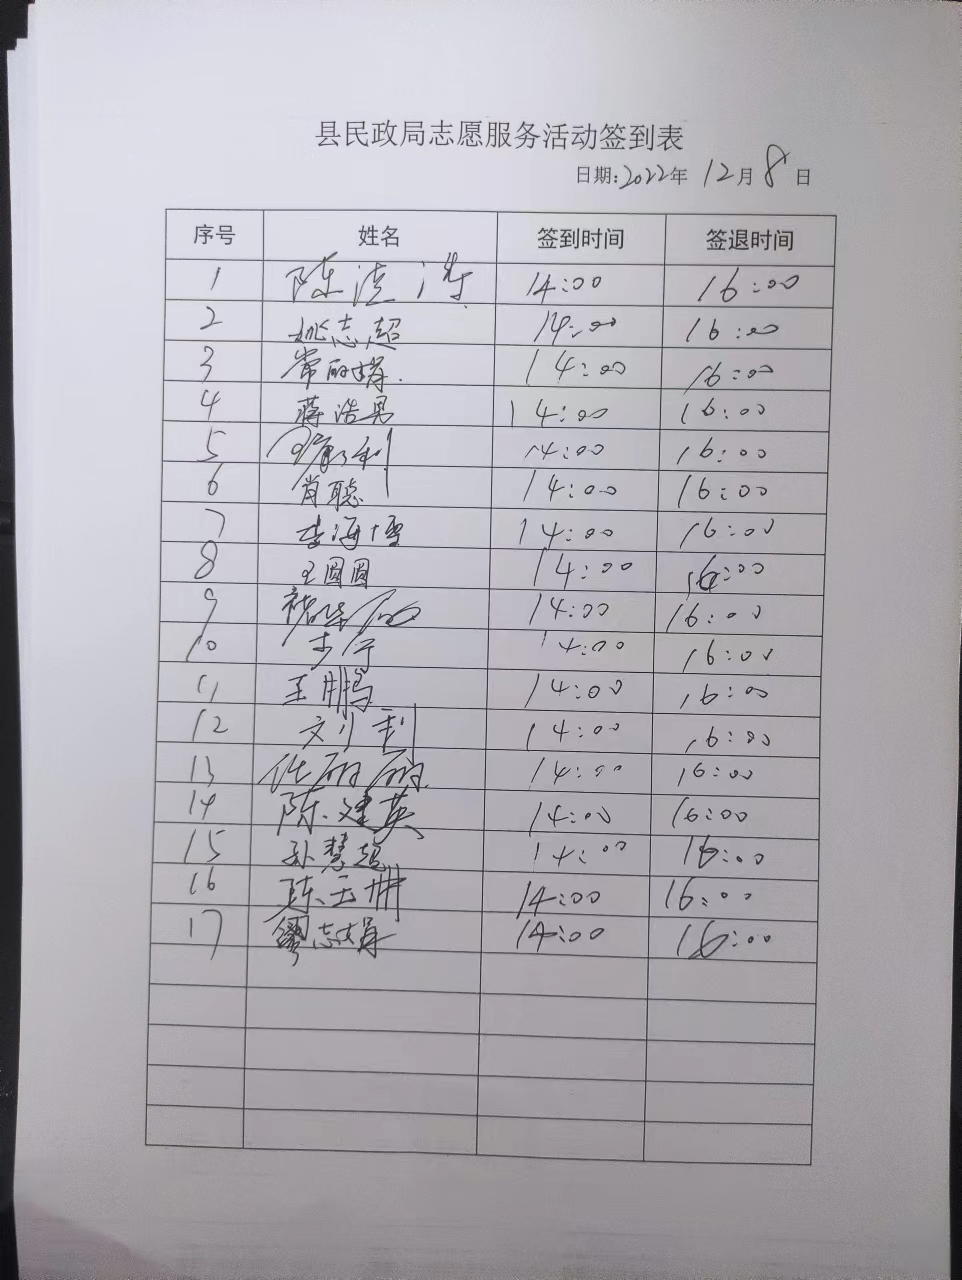 县民政局志愿服务活动签到表
日期:2022年 12月8日
序号 姓名 签到时间 签退时间
1 陈 14:00 16:00
2 姚志超 14:00 16:00
3 常丽娟 14:00 16:00
4 蒋浩男 14:00 16:00
5 14:00 16:00
6 肖聪 14:00 16:00
7 李海雪 14:00 16:00
8 王圆圆 14:00 16:00
9 14:00 16:00
10 14:00 16:00
11 王鹏 14:00 16:00
12 刘利 14:00 16:00
13 任丽丽 14:00 16:00
14 陈建英 14:00 16:00
15 孙慧超 14:00 16:00
16 陈玉册 14:00 16:00
17 廖志娟 14:00 16:00